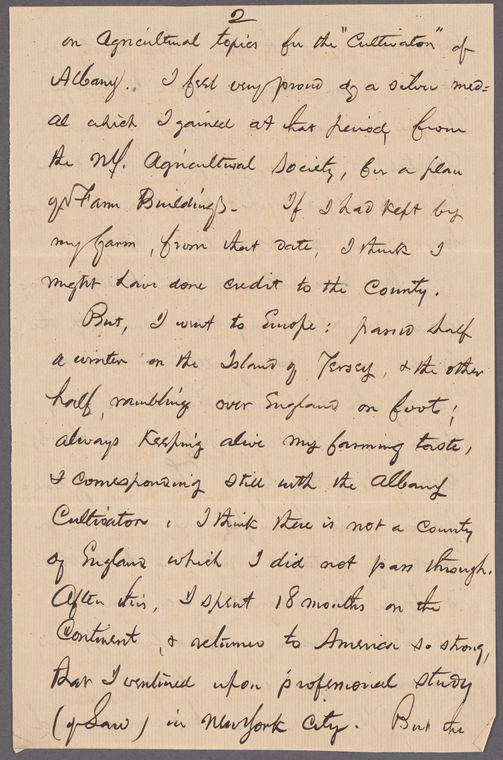 2
on Agricultural topics for the "Cultivator" of
Albany. I feel very proud of a silver med=
al which I gained at that period, from
the NY. Agricultural Society, for a plan
of Farm Buildings. If I had kept by
my farm, from that date, I think I
might have done credit to the County.
But, I went to Europe: passed half
a winter on the Island of Jersey, & the other
half, rambling over England on foot;
always keeping alive my farming taste,
& corresponding still with the Albany
Cultivator. I think there is not a county
of England which I did not pass through.
After this, I spent 18 months on the
Continent, & returned to America so strong,
that I ventured upon professional study
(of Law) in New York City. But the